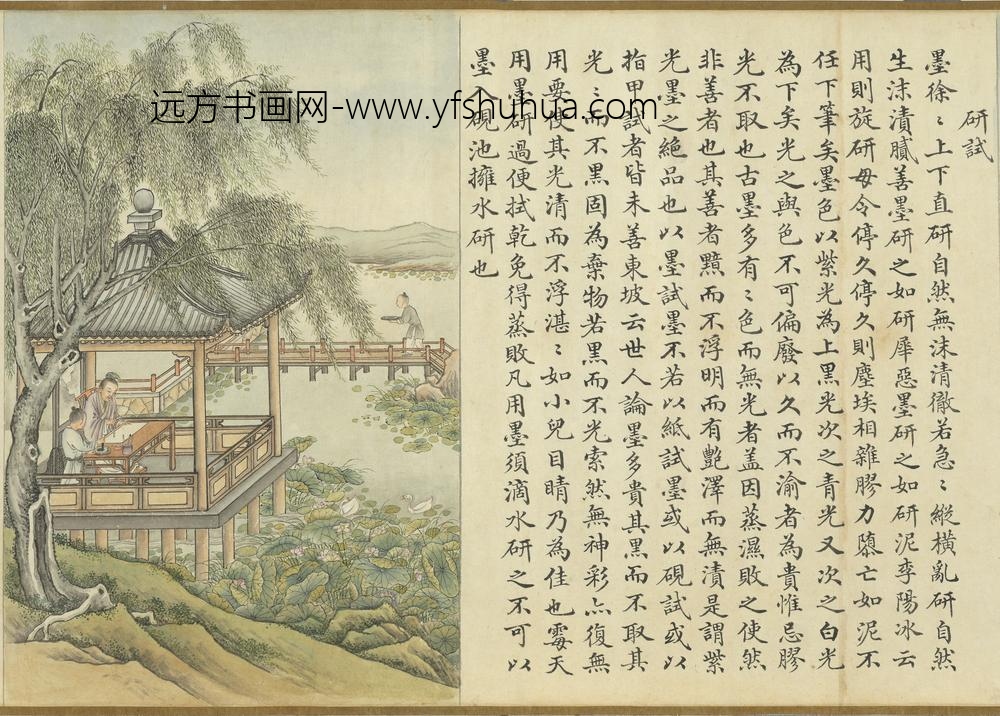 研試
墨徐〻上下直研自然無沫清徹若急〻縱横亂研自然
生沫漬膩善墨研之如研犀惡墨研之如研泥李陽冰云
用則旋研毋令停久停久則塵埃相雜膠力隳亡如泥不
任下筆矣墨色以紫光為上黑光次之青光又次之白光
為下矣光之與色不可偏廢以久而不渝者為貴惟忌膠
光不取也古墨多有〻色而無光者盖因蒸濕敗之使然
非善者也其善者黯而不浮明而有艷澤而無漬是謂紫
光墨之絶品也以墨試墨不若以紙試墨或以硯試或以
指甲試者皆未善東坡云世人論墨多貴其黑而不取其
光〻而不黑固為棄物若黑而不光索然無神彩亦復無
用要使其光清而不浮湛〻如小兒目睛乃為佳也霉天
用墨研過便拭乾免得蒸敗凡用墨須滴水研之不可以
墨入硯池擁水研也
远方书画网-www.yfshuhua.com